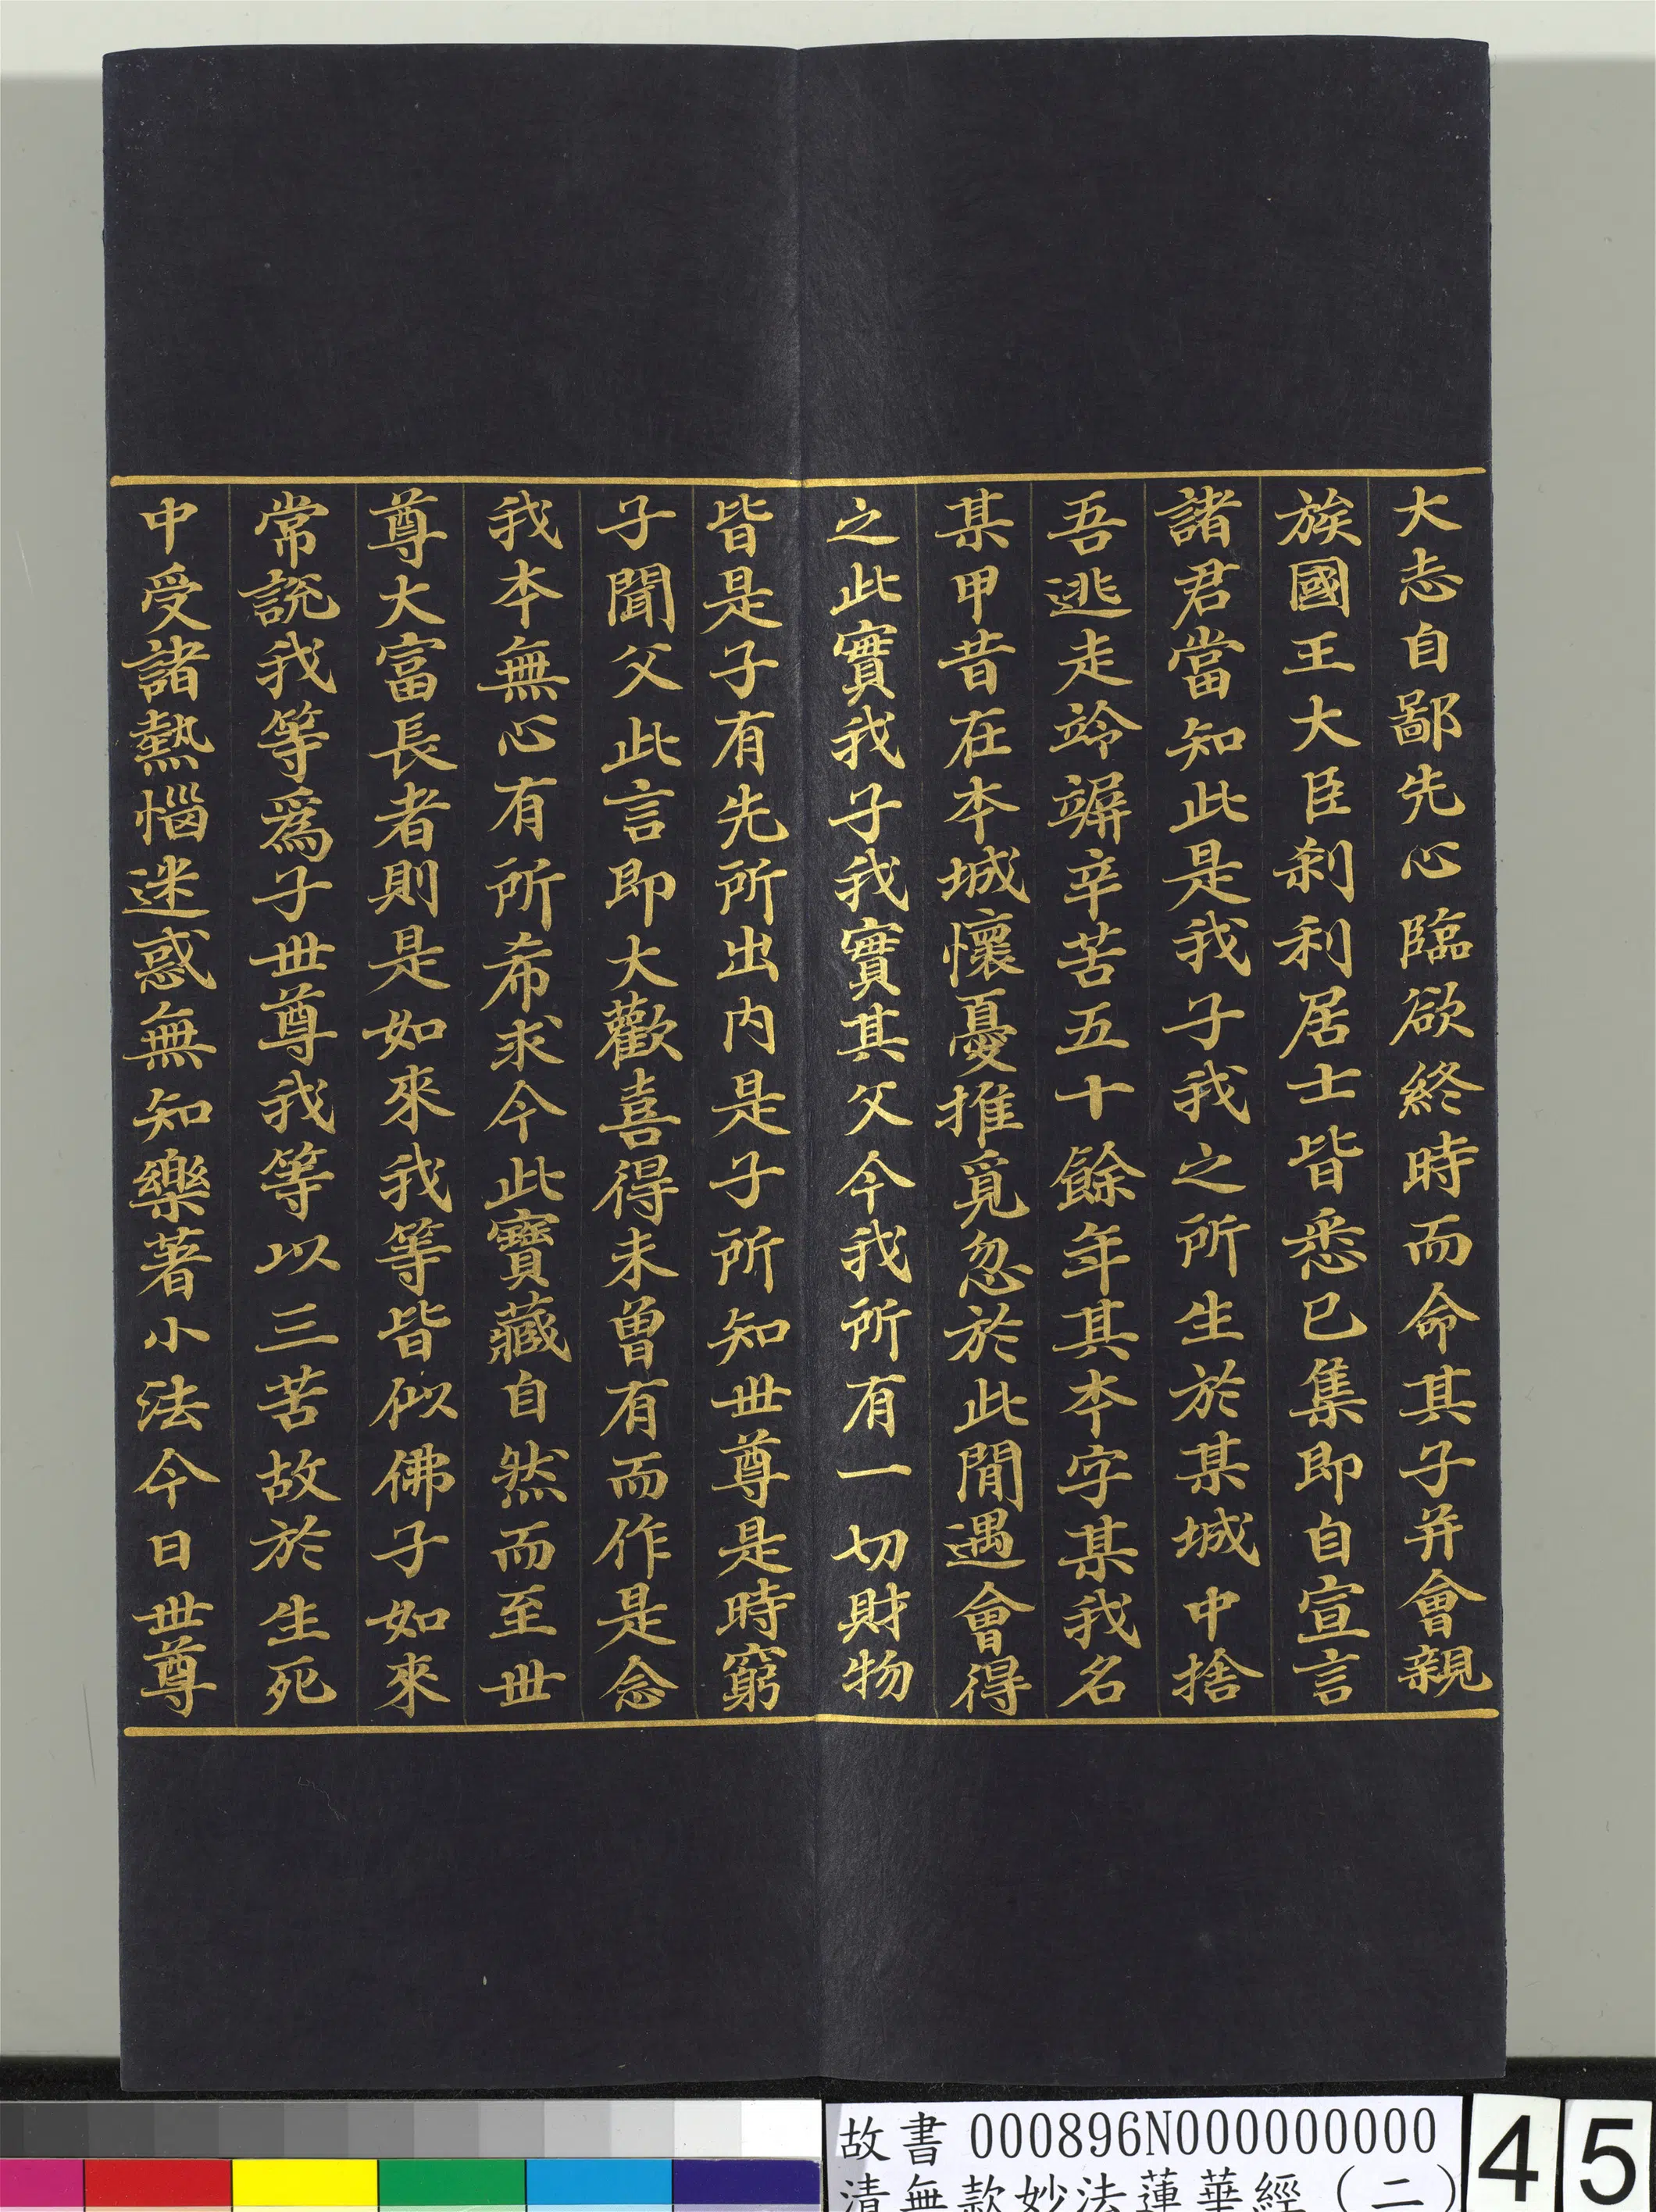 大志自鄙先心臨欲終時而命其子并會親
族國王大臣刹利居士皆悉已集即自宣言
諸君當知此是我子我之所生於某城中捨
吾逃走竛竮辛苦五十餘年其本字某我名
某甲昔在本城懷憂推覓忽於此間遇會得
之此實我子我實其父今我所有一切財物
皆是子有先所出内是子所知世尊是時窮
子聞父此言即大歡喜得未曾有而作是念
我本無心有所希求今此寶藏自然而至世
尊大富長者則是如來我等皆似佛子如來
常說我等為子世尊我等以三苦故於生死
中受諸熱惱迷惑無知樂著小法今日世尊
故書 000896N000000000
清無款妙法蓮華經(二)
45